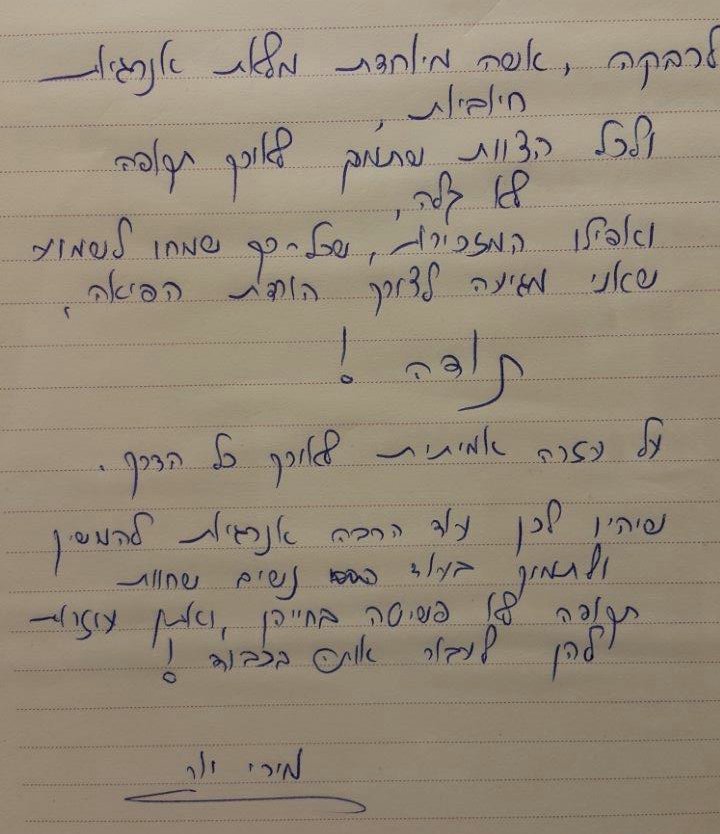 לרבקה, אשה מיוחדת מלאת אנרגיות
חיוביות,
ולכל הצוות שתמך לאורך תקופה
לא קלה,
ואפילו המזכירות, שכל-כך שמחו לשמוע
שאני מגיעה לצורך הורדת הפיאה,
תודה!
על עזרה אמיתית לאורך כל הדרך.
שיהיו לכן עוד הרבה אנרגיות להמשיך
ולתמוך בעוד נשים שחוות
תקופה לא פשוטה בחייהן, ואתן עוזרות
להן לעבור אותה בכבוד!
מירי